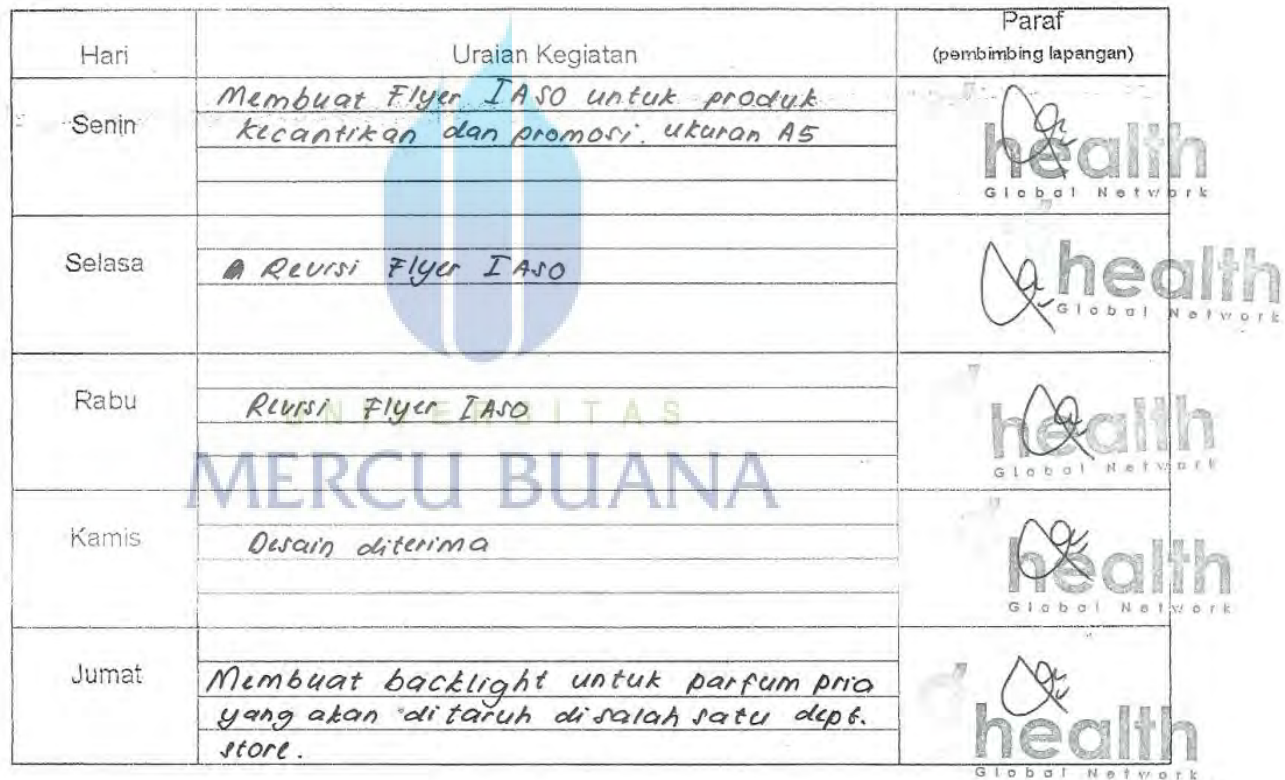 Hari Uraian Kegiatan Paraf
(pembimbing lapangan)
Senin
Membuat Flyer IASO untuk produk
kecantikan dan promosi. ukuran A5
health
Global Network
Selasa
Revisi Flyer IASO
health
Global Network
Rabu
Revisi Flyer IASO
health
Global Network
UNIVERSITAS
MERCU BUANA
Kamis
Desain diterima
health
Global Network
Jumat
Membuat backlight untuk parfum pria
yang akan ditaruh disalah satu dept.
store.
health
Global Network